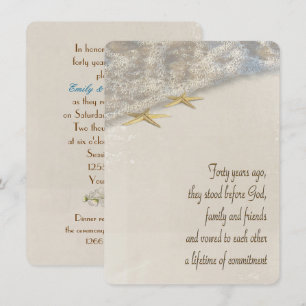 In honor
forty year
pl
Emily &
as they r
on Saturda
Two thou
at six o'
Seasi
125
You
Dinner re
the ceremony
1266
Forty years ago,
they stood before God,
family and friends
and vowed to each other
a lifetime of commitment